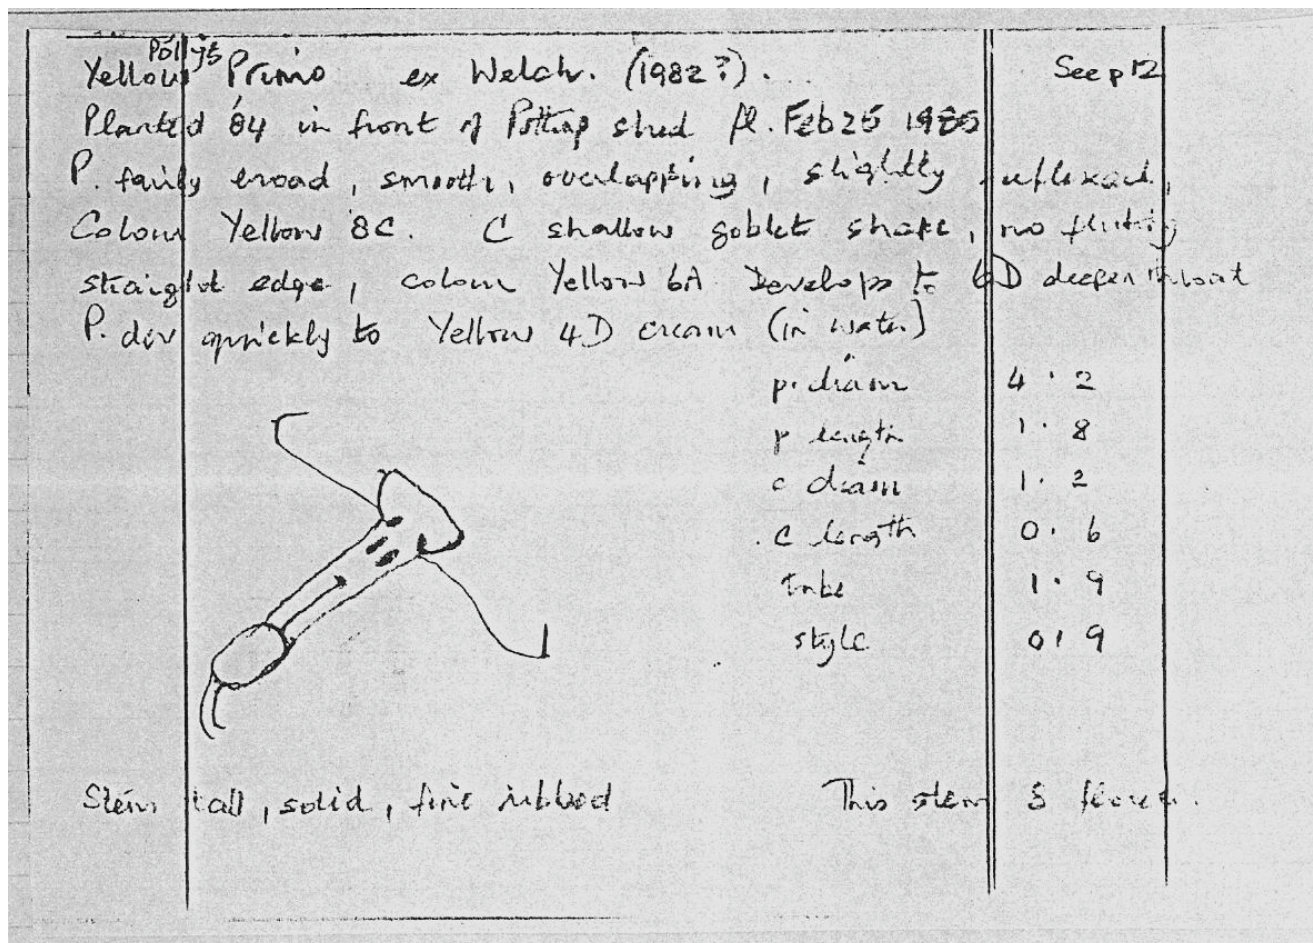 Polly's
Yellow Primo ex Welch. (1982?). See p 12
Planted '84 in front of Potting shed fl. Feb 25 1985
P. fairly broad, smooth, overlapping, slightly reflexed,
Colour Yellow 8C. C shallow goblet shape, no fluting
straight edge, colour Yellow 6A Develops to 6D deeper throat
P. dev quickly to Yellow 4D cream (in water)
p. diam 4.2
p length 1.8
c diam 1.2
c length 0.6
tube 1.9
style 0.9
Stem tall, solid, fine ribbed This stem 8 flowers.